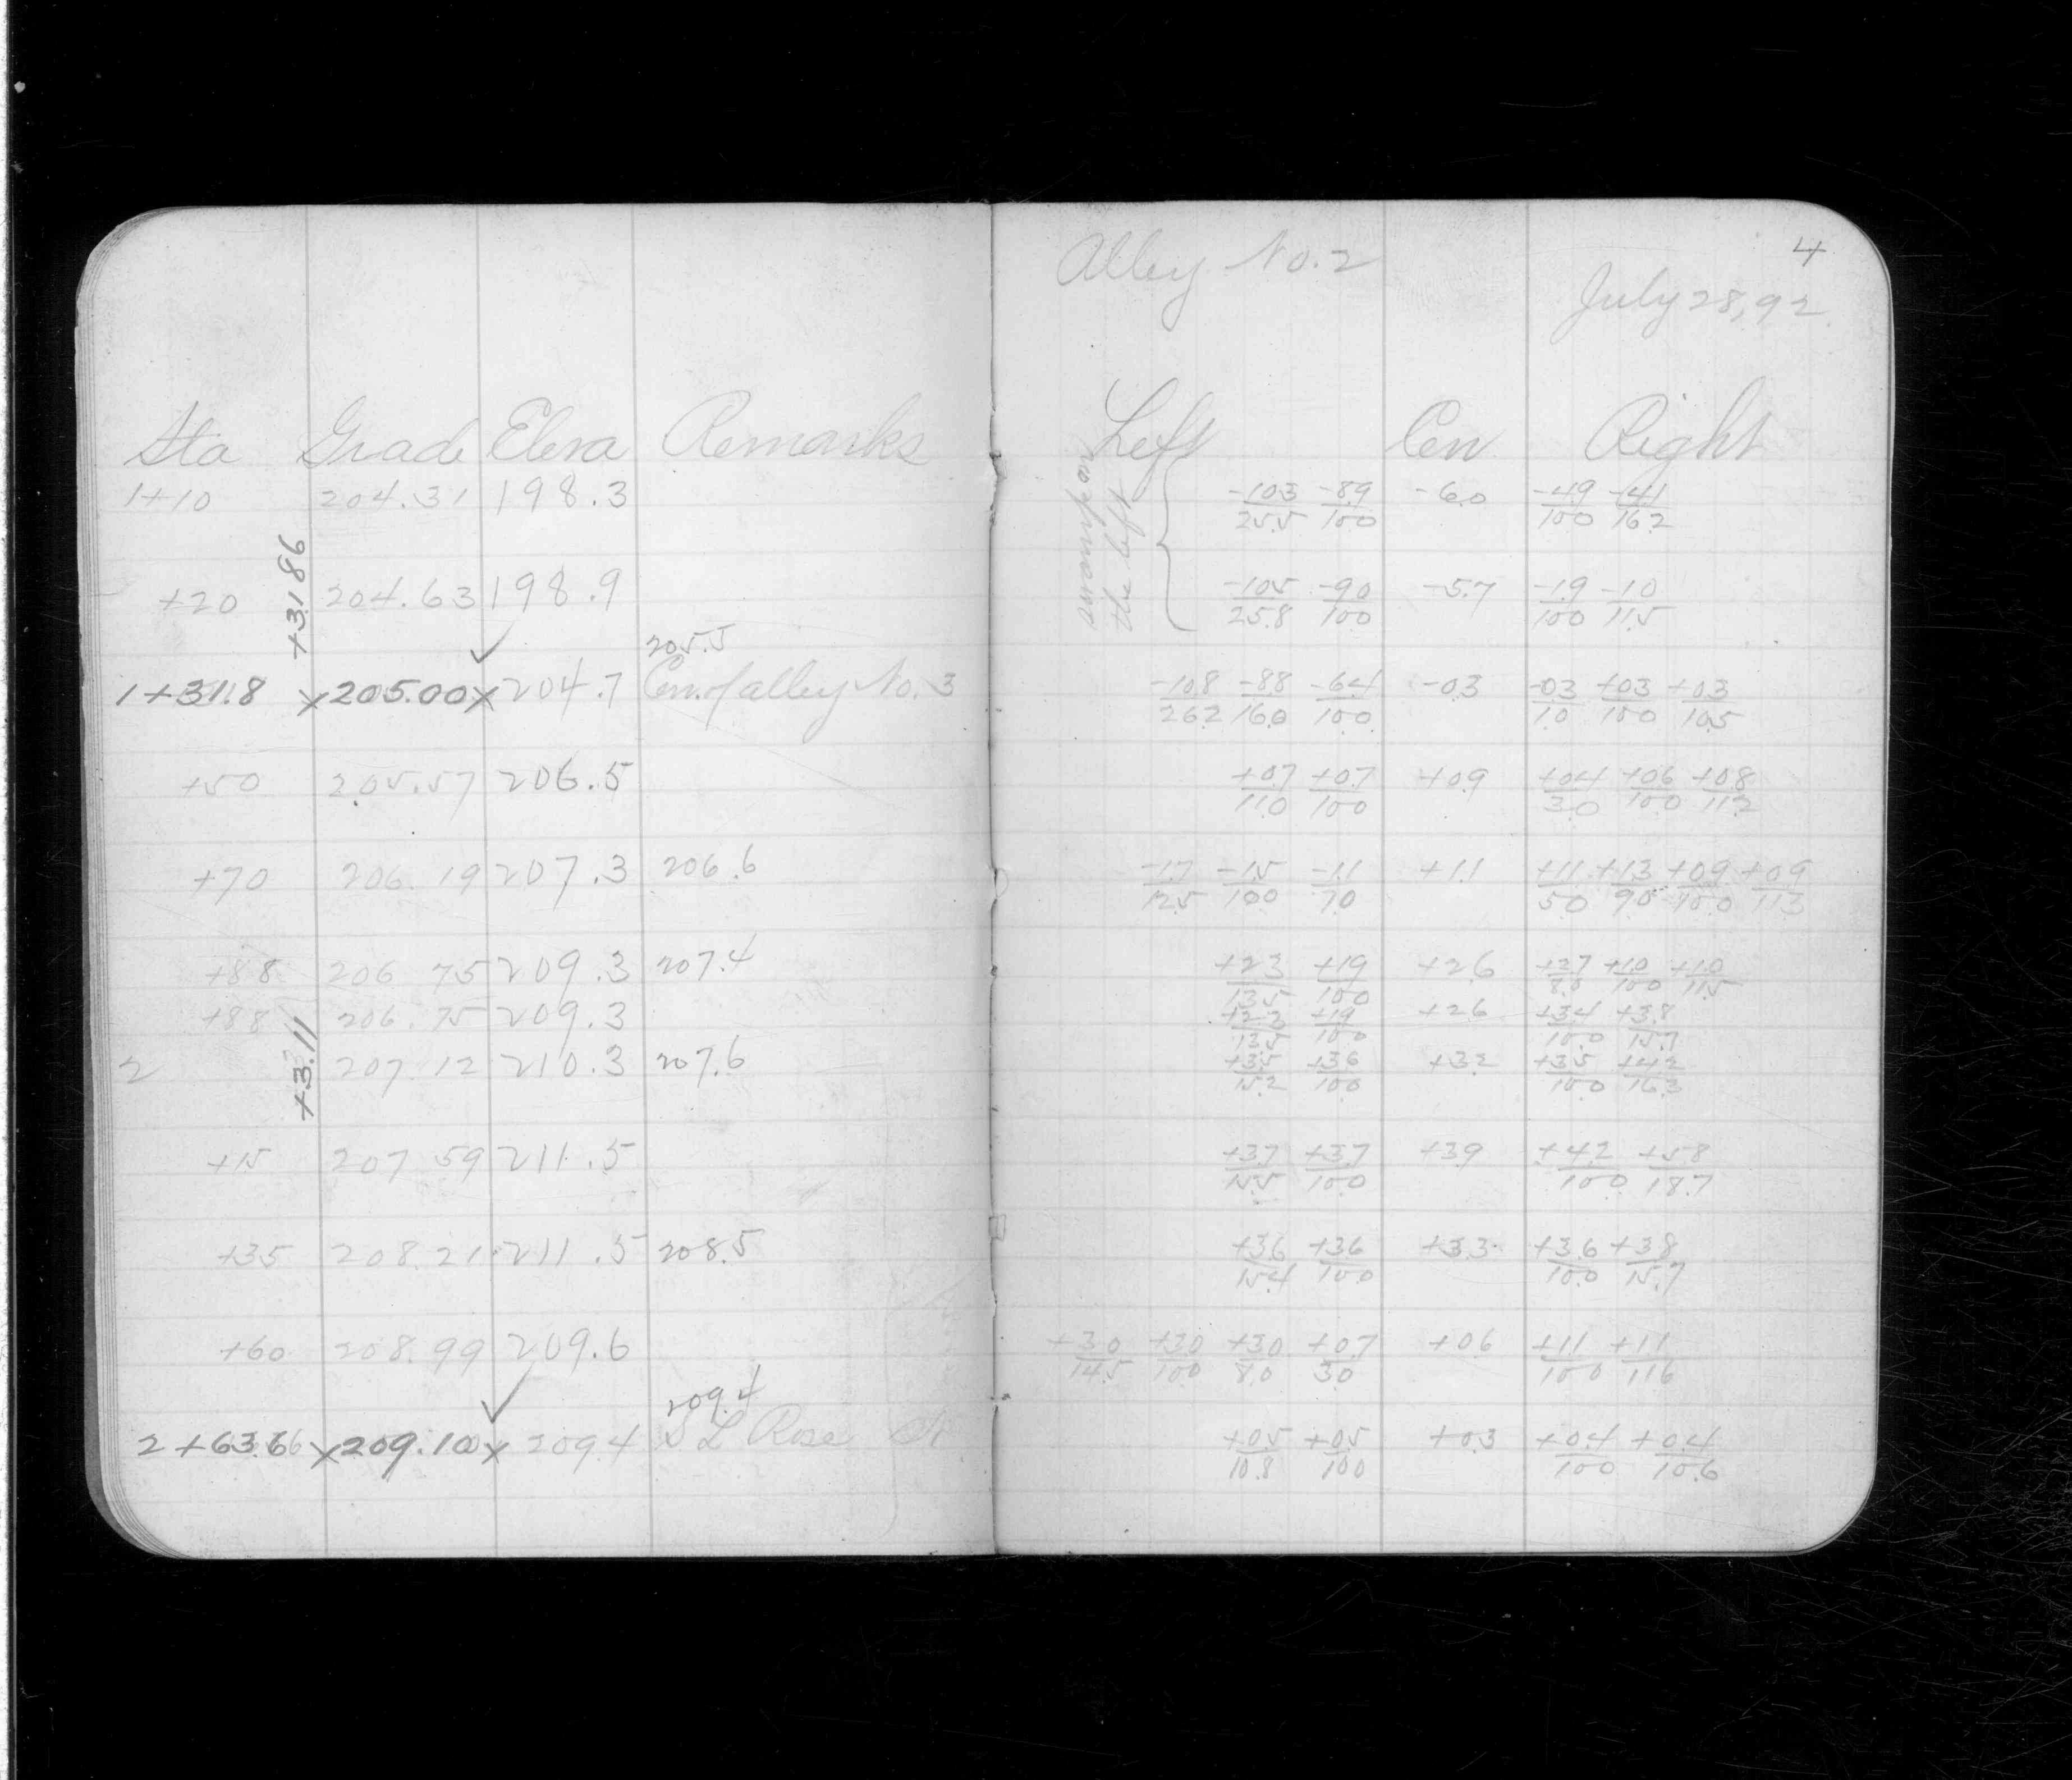 Alley No. 2
4
July 28, 92
Sta Grade Eleva Remarks Left Cen Right
1+10 204.31 198.3 -10.3/25.5 -8.9/10.0 -6.0 -4.9/10.0 -4.1/16.2
+3.186
swamp on
the left
+20 204.63 198.9 -10.5/25.8 -9.0/10.0 -5.7 -1.9/10.0 -1.0/11.5
205.5
1+31.8 x 205.00 x 204.7 Cen. of alley No. 3 -10.8/26.2 -8.8/16.0 -6.4/10.0 -0.3 -0.3/10 +0.3/10.0 +0.3/10.5
+50 205.57 206.5 +0.7/11.0 +0.7/10.0 +0.9 +0.4/3.0 +0.6/10.0 +0.8/11.2
+70 206.19 207.3 206.6 -1.7/12.5 -1.5/10.0 -1.1/7.0 +1.1 +1.1/5.0 +1.3/9.0 +0.9/10.0 +0.9/11.3
+88 206.75 209.3 207.4 +2.3/13.5 +1.9/10.0 +2.6 +2.7/8.0 +1.0/10.0 +1.0/11.5
+88 206.75 209.3 +2.3/13.5 +1.9/10.0 +2.6 +3.4/10.0 +3.8/15.7
+3.11
2 207.12 210.3 207.6 +3.5/15.2 +3.6/10.0 +3.2 +3.5/10.0 +4.2/16.3
+15 207.59 211.5 +3.7/15.5 +3.7/10.0 +3.9 +4.2/10.0 +5.8/18.7
+35 208.21 211.5 208.5 +3.6/15.4 +3.6/10.0 +3.3 +3.6/10.0 +3.8/15.7
+60 208.99 209.6 +3.0/14.5 +3.0/10.0 +3.0/8.0 +0.7/3.0 +0.6 +1.1/10.0 +1.1/11.6
209.4
2+63.66 x 209.10 x 209.4 S L Rose St +0.5/10.8 +0.5/10.0 +0.3 +0.4/10.0 +0.4/10.6